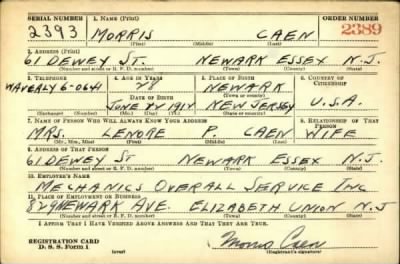 SERIAL NUMBER 1. NAME (Print) ORDER NUMBER
2393 MORRIS CAEN 2389
(First) (Middle) (Last)
2. ADDRESS (Print)
61 DEWEY ST. NEWARK ESSEX N.J.
(Number and street or R. F. D. number) (Town) (County) (State)
3. TELEPHONE 4. AGE IN YEARS 5. PLACE OF BIRTH 6. COUNTRY OF CITIZENSHIP
WAVERLY 6-0641 28 NEWARK
DATE OF BIRTH (Town or county)
JUNE 1912 NEW JERSEY U.S.A.
(Exchange) (Number) (Mo.) (Day) (Yr.) (State or country)
7. NAME OF PERSON WHO WILL ALWAYS KNOW YOUR ADDRESS 8. RELATIONSHIP OF THAT PERSON
MRS. LENORE P. CAEN WIFE
(Mr., Mrs., Miss) (First) (Middle) (Last)
9. ADDRESS OF THAT PERSON
61 DEWEY ST NEWARK ESSEX N.J.
(Number and street or R. F. D. number) (Town) (County) (State)
10. EMPLOYER'S NAME
MECHANICS OVERALL SERVICE INC
11. PLACE OF EMPLOYMENT OR BUSINESS
829 NEWARK AVE. ELIZABETH UNION N.J
(Number and street or R. F. D. number) (Town) (County) (State)
I AFFIRM THAT I HAVE VERIFIED ABOVE ANSWERS AND THAT THEY ARE TRUE.
REGISTRATION CARD Morris Caen
D. S. S. Form 1 (over) (Registrant's signature)